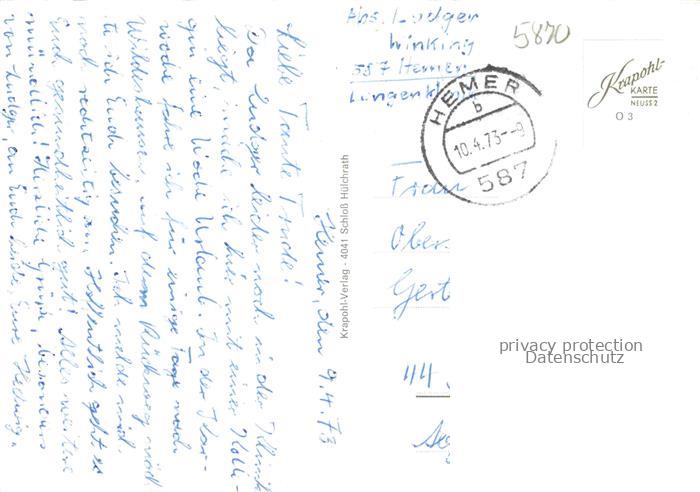 Hemer, den 9.4.73
Liebe Tante Trude!
Da Ludger leider noch in der Klinik
liegt, mache ich hier mit einer Kolle-
gin eine Woche Urlaub. In der Kar-
woche fahre ich für einige Tage nach
Wildeshausen, auf dem Rückweg möch
te ich Euch besuchen. Ich melde mich
noch rechtzeitig an. Hoffentlich geht es
Euch gesundheitlich gut! Alles weitere
mündlich! Herzliche Grüße, besonders
von Ludger an Euch beide, Eure Hedwig.
Krapohl-Verlag - 4041 Schloß Hülchrath
Abs. Ludger
Winking
587 Hemer
5870
HEMER
b
10.4.73--9
587
Krapohl-
KARTE
NEUSS 2
O 3
Frau
Ober
Gert
44
privacy protection
Datenschutz